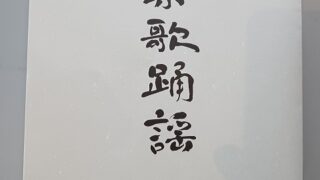 歌踊謡